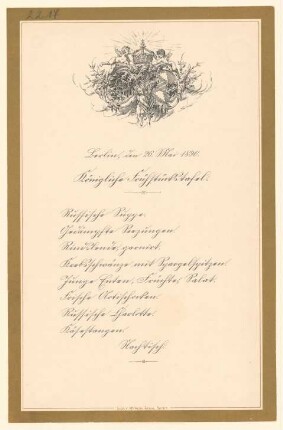 Berlin, den 26. Mai 1890.
Königliche Frühstückstafel.
Russische Suppe.
Gedämpfte Seezungen.
Rindslende, garnirt.
Krebsschwänze mit Spargelspitzen.
Junge Enten, Früchte, Salat.
Frische Artischocken.
Russische Charlotte.
Käsestangen.
Nachtisch.